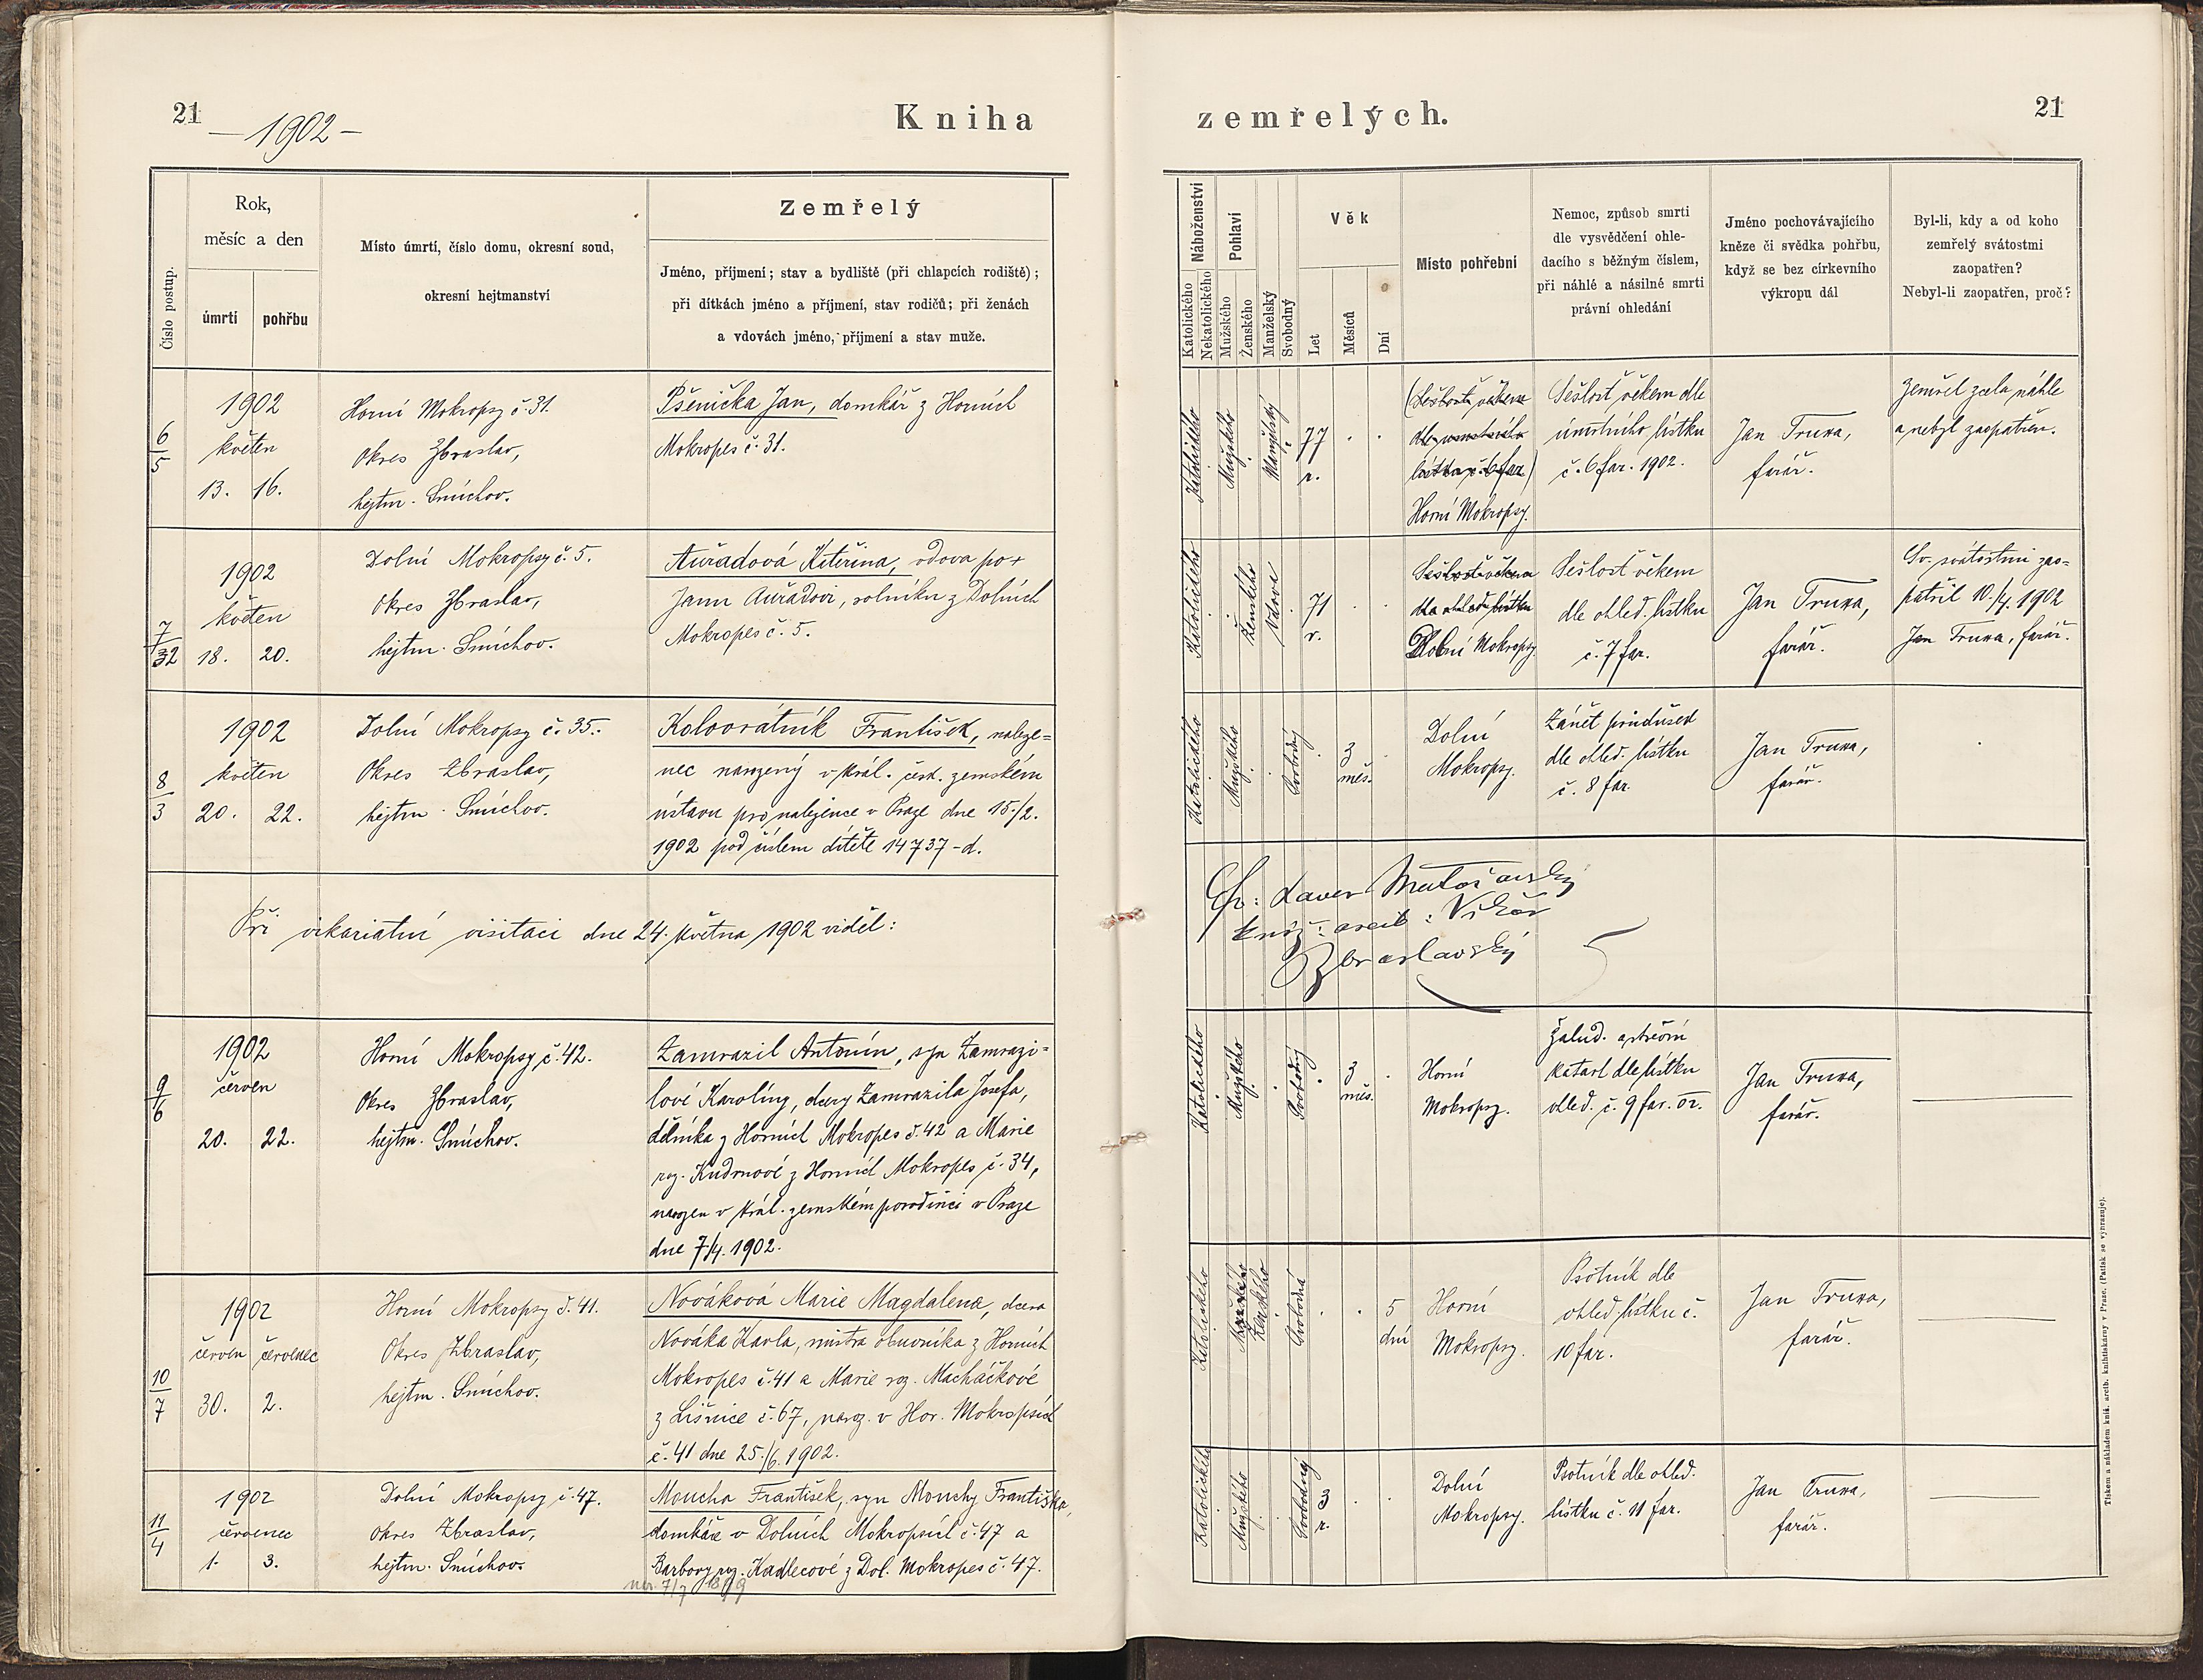 21
— 1902 —
Kniha
zemřelých.
21
Číslo postup.
Rok,
měsíc a den
úmrtí
pohřbu
Místo úmrtí, číslo domu, okresní soud,
okresní hejtmanství
Zemřelý
Jméno, příjmení; stav a bydliště (při chlapcích rodiště);
při dítkách jméno a příjmení, stav rodičů; při ženách
a vdovách jméno, příjmení a stav muže.
Náboženství
Katolického
Nekatolického
Pohlaví
Mužského
Ženského
Manželský
Svobodný
Věk
Let
Měsíců
Dní
Místo pohřební
Nemoc, způsob smrti
dle vysvědčení ohle-
dacího s běžným číslem,
při náhlé a násilné smrti
právní ohledání
Jméno pochovávajícího
kněze či svědka pohřbu,
když se bez církevního
výkropu dál
Byl-li, kdy a od koho
zemřelý svátostmi
zaopatřen?
Nebyl-li zaopatřen, proč?
6/5
1902
květen
13. 16.
Horní Mokropsy č. 31.
Okres Zbraslav,
hejtm. Smíchov.
Pšenička Jan, domkář z Horních
Mokropes č. 31.
Katolického
Mužského
Manželský
77
r.
(Sešlostí věkem
dle úmrtního
lístku č. 6 far)
Horní Mokropsy.
Sešlosť věkem dle
úmrtního lístku
č. 6 far. 1902.
Jan Truxa,
farář.
Zemřel zcela náhle
a nebyl zaopatřen.
7/32
1902
květen
18. 20.
Dolní Mokropsy č. 5.
Okres Zbraslav,
hejtm. Smíchov.
Auřadová Kateřina, vdova po +
Janu Auřadovi, rolníku z Dolních
Mokropes č. 5.
Katolického
Ženského
Vdova
71
r.
Sešlosť věkem
dle ohled. lístku
Dolní Mokropsy.
Sešlosť věkem
dle ohled. lístku
č. 7 far.
Jan Truxa,
farář.
Sv. svátostmi zao-
patřil 10./4. 1902
Jan Truxa, farář.
8/3
1902
květen
20. 22.
Dolní Mokropsy č. 35.
Okres Zbraslav,
hejtm. Smíchov.
Kolovrátník František, naleze=
nec narozený v král. česk. zemském
ústavu pro nalezence v Praze dne 15./2.
1902 pod číslem dítěte 14737-d.
Katolického
Mužského
Svobodný
3
měs.
Dolní
Mokropsy.
Zánět průdušek
dle ohled. lístku
č. 8 far.
Jan Truxa,
farář.
Při vikariatní visitaci dne 24. května 1902 viděl:
kníž: arcib: Vikář
Zbraslavský
9/6
1902
červen
20. 22.
Horní Mokropsy č. 42.
Okres Zbraslav,
hejtm. Smíchov.
Zamrazil Antonín, syn Zamrazi=
lové Karolíny, dcery Zamrazila Josefa,
dělníka z Horních Mokropes č. 42 a Marie
roz. Kudrnové z Horních Mokropes č. 34,
narozen v král. zemském porodinci v Praze
dne 7/4. 1902.
Katolického
Mužského
Svobodný
3
měs.
Horní
Mokropsy.
Žalud. a střevní
katarh dle lístku
ohled. č. 9 far. 02.
Jan Truxa,
farář.
10/7
1902
červen červenec
30. 2.
Horní Mokropsy č. 41.
Okres Zbraslav,
hejtm. Smíchov.
Nováková Marie Magdalena, dcera
Nováka Karla, mistra obuvníka z Horních
Mokropes č. 41 a Marie roz. Macháčkové
z Lišnice č. 67, naroz. v Hor. Mokropsích
č. 41 dne 25./6. 1902.
Katolického
Mužského
Ženského
Svobodná
5
dní
Horní
Mokropsy.
Psotník dle
ohled lístku č.
10 far.
Jan Truxa,
farář.
11/4
1902
červenec
1. 3.
Dolní Mokropsy č. 47.
Okres Zbraslav,
hejtm. Smíchov.
Moucha František, syn Mouchy Františka,
domkáře v Dolních Mokropsích č. 47 a
Barbory roz. Kadlecové z Dol. Mokropes č. 47.
nar. 7/7 1899
Katolického
Mužského
Svobodný
3
r.
Dolní
Mokropsy.
Psotník dle ohled.
lístku č. 11 far.
Jan Truxa,
farář.
Tiskem a nákladem kníž. arcib. knihtiskárny v Praze. (Patisk se vyhrazuje).